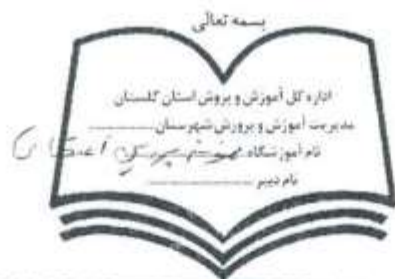 بسمه تعالی
اداره کل آموزش و پرورش استان گلستان
مدیریت آموزش و پرورش شهرستان ...............
نام آموزشگاه
نام دبیر ....................